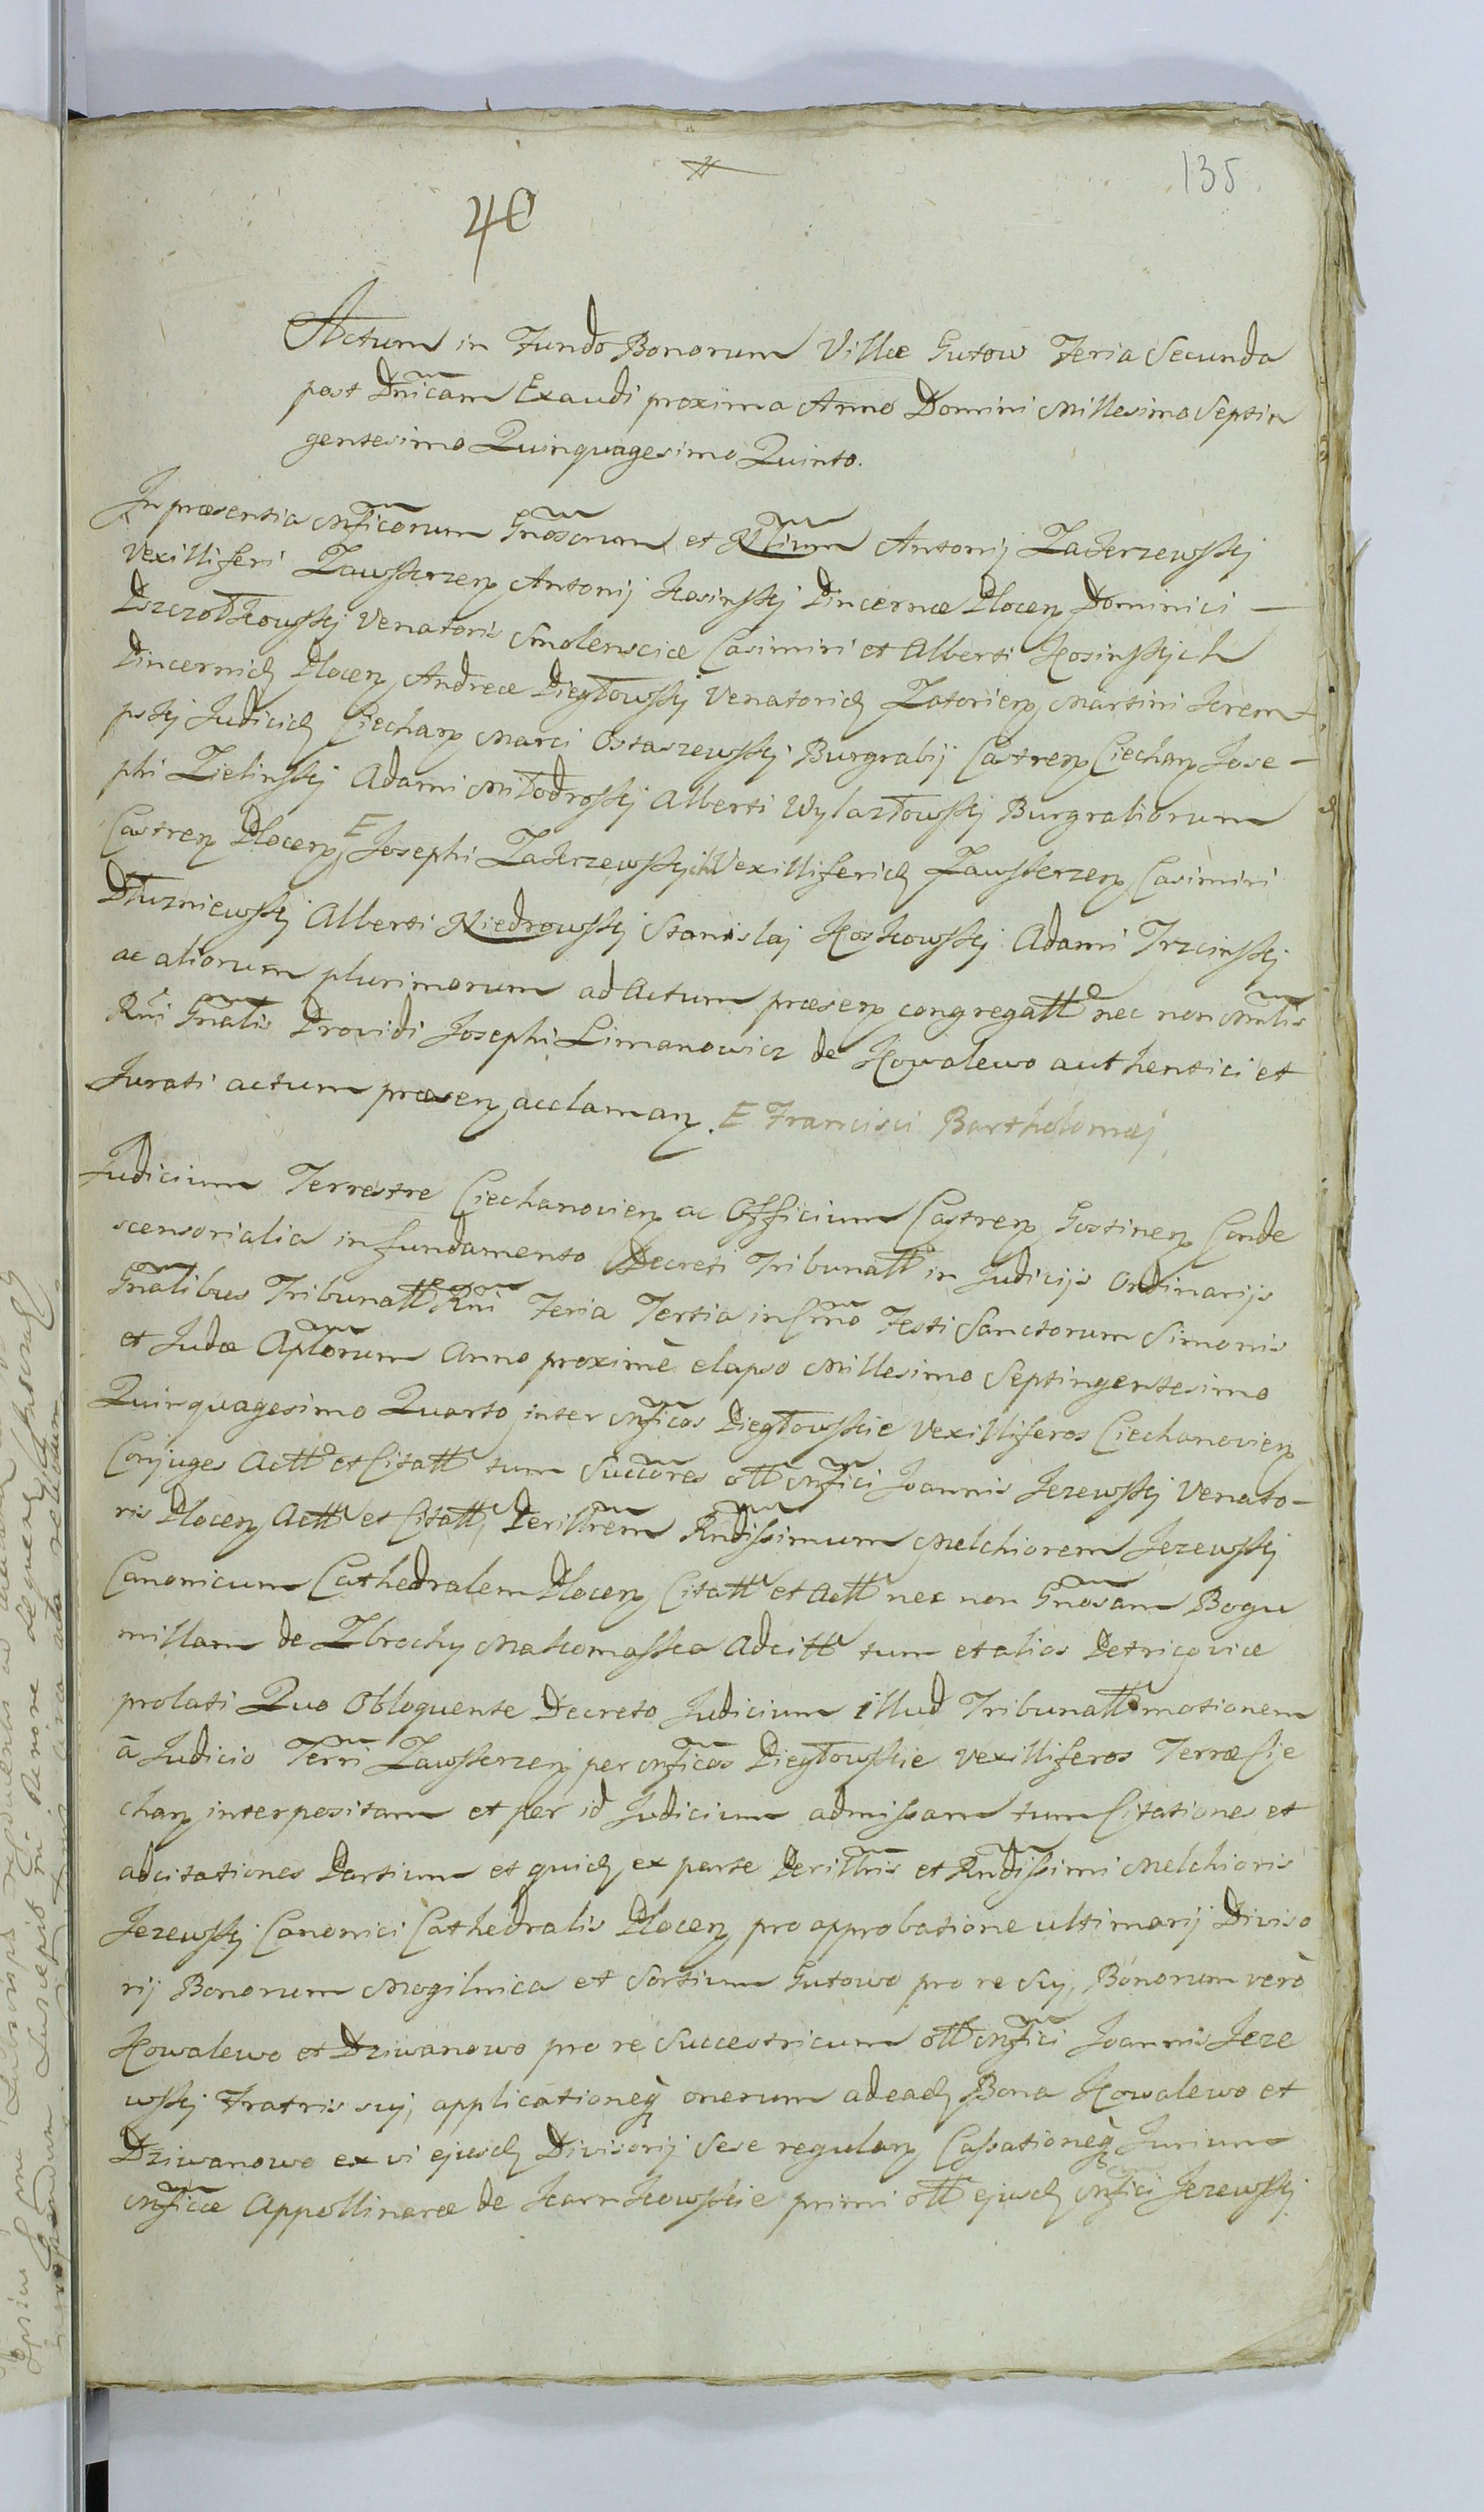 135
40
Actum in Fundo Bonorum Villæ Gutow Feria Secunda
post Dnicam Exaudi proxima Anno Domini Millesimo Septin
gentesimo Quinquagesimo Quinto.
In præsentia Mficorum Gnosorum et Nlium Antonij Zakrzewskj
Vexilliferi Zawskrzen Antonij Kosinskj Pincernæ Plocen Dominici —
Pszczołkowskj Venatoris Smolensciæ Casimiri et Alberti Kosinskich
Pincernid Plocen Andreæ Piegłowskj Venatorid Zatorien Martini Krem
pskj Judicid Ciechan Marci Ostaszewskj Burgrabij Castren Ciechan Jose —
phi Zielinskj Adami Miłodroskj Alberti Wylazłowskj Burgrabiorum
Castren Plocen E Josephi Zakrzewskich Vexilliferid Zawskrzen Casimiri
Dłuzniewskj Alberti Niedrowskj Stanislaj Koskowskj Adami Trzcinskj
ac aliorum plurimorum ad Actum præsen congregatt nec non Mnlis
Rni Gnalis Providi Josephi Limanowicz de Kowalewo authentici et
Jurati actum præsen acclaman. E Francisci Bartholomæj
Judicium Terrestre Ciechanovien ac Officium Castren Gostinen Conde
scensorialia in fundamento Decreti Tribunatt in Judicijs Ordinarijs
Gnalibus Tribunatt Rni Feria Tertia in Crno Festi Sanctorum Simonis
et Judæ Aplorum Anno proximè elapso Millesimo Septingentesimo
Quinquagesimo Quarto inter Mficos Piegłowskie Vexilliferos Ciechanovien
Conjuges Actt et Citatt tum Succores ott Mfici Joannis Jezewskj Venato —
ris Plocen Actt et Citatt, Perillrem Rndissimum Melchiorem Jezewskj
Canonicum Cathedralem Plocen Citatt et Actt nec non Gnosam Bogu
millam de Zbrochy Makomaska Adcitt tum et alios Petricoviæ
prolati Quo Obloquente Decreto Judicium illud Tribunatt motionem
à Judicio Terri Zawskrzen per Mficos Piegłowskie Vexilliferos Terræ Cie
chan interpositam et per id Judicium admissam tum Citationes et
adcitationes Partium et quid ex parte Perillris et Rndissimi Melchioris
Jezewskj Canonici Cathedralis Plocen pro approbatione ultimarij Diviso
rij Bonorum Mogilnica et Sortium Gutowo pro re Suj, Bonorum verò
Kowalewo et Dziwanowo pro re Successtricum ott Mfici Joannis Jeze
wskj Fratris suj, applicationeq onerum ad ead Bona Kowalewo et
Dziwanowo ex vi ejusd Divisorij Sese regulan Cassationeq Jurium
Mficæ Appollinaræ de Karnkowskie primi ott ejusd Mfici Jezewskj